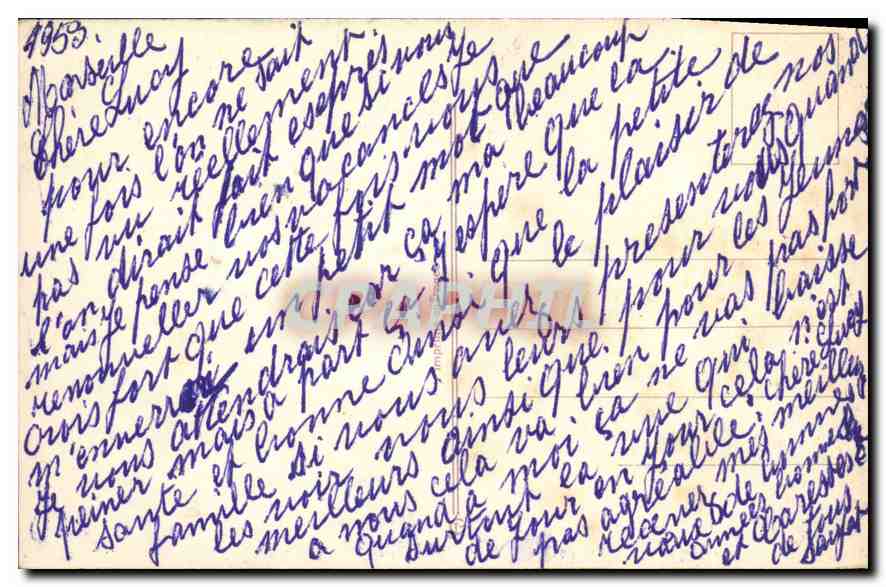 1953.
Marseille
Chère Lucy
pour encore
une fois l'on ne sait
pas vu réellement.
l'on dirait fait esprès
mais je pense bien que si vous
renouveller vos vacances je
crois fort que cette fois vous
m'enverrai un petit mot que
Je vous attendrais car ça ma beaucoup
peiner mais à part ça j'espère que la
sante et bonne ainsi que la petite
famille si vous avez le plaisir de
les voir vous leurs presenterez nos
meilleurs ainsi que pour vous
a nous cela va bien pour les jeunes
quand à moi ça ne vas pas fort
surtout la vue qui baisse
de jour en jour cela n'est
pas agréable. Chère Lucy
recever mes meilleurs
vœux de bonnes
années bonnes
et Caresses
de tous